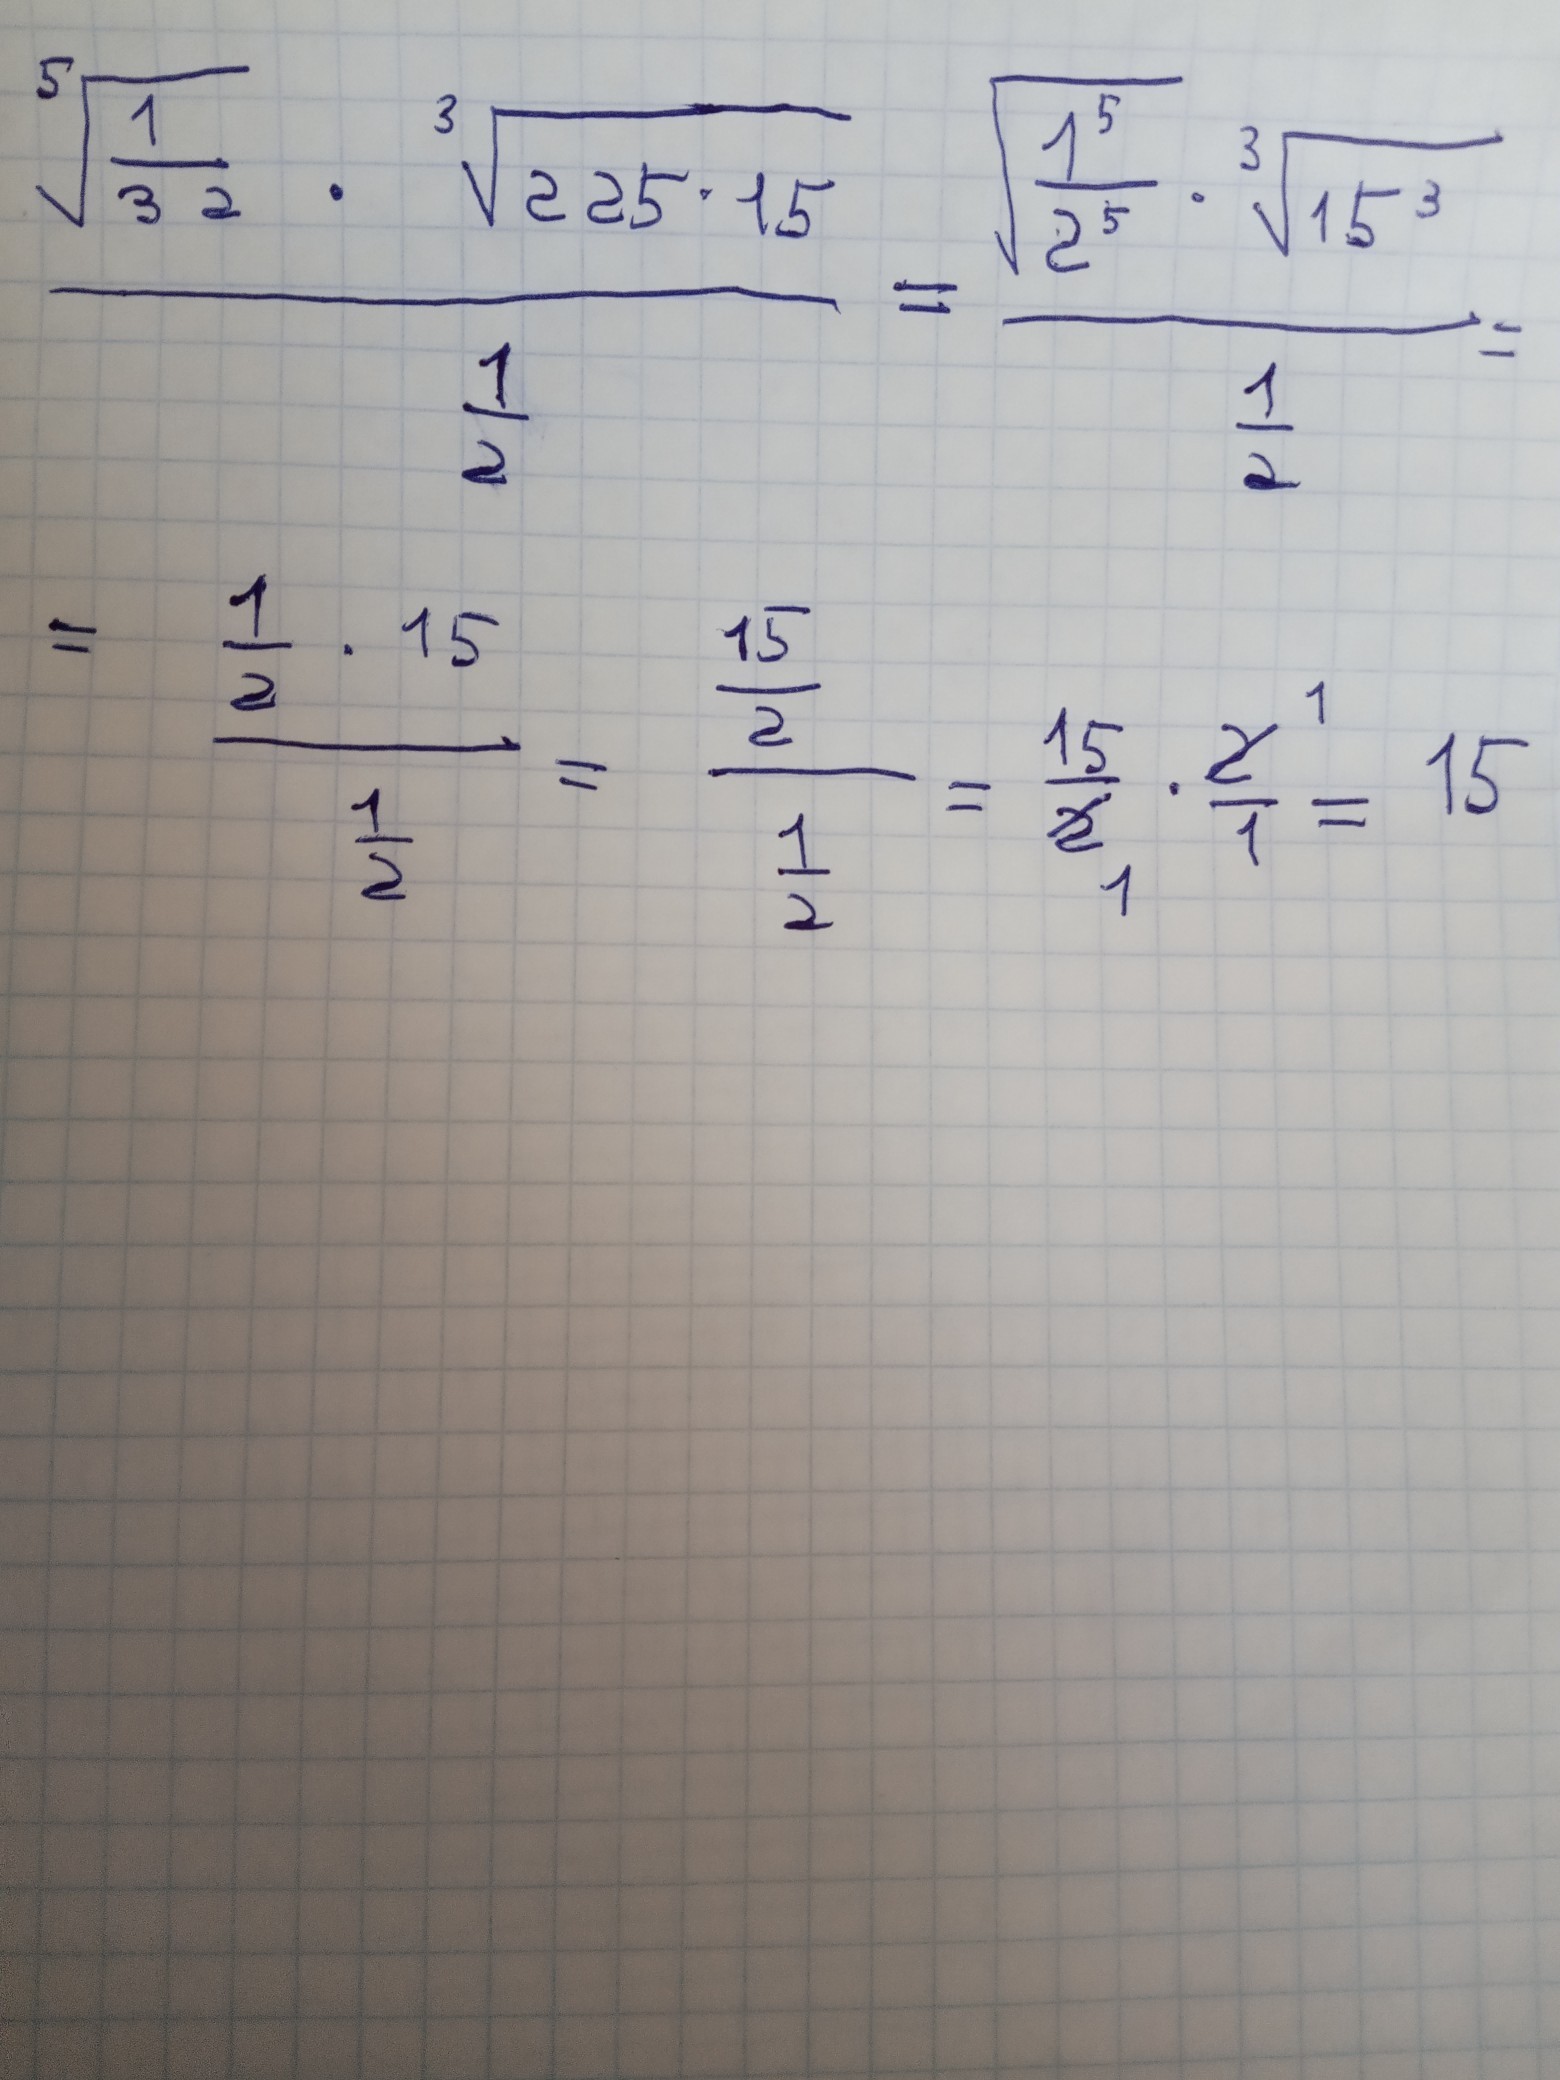 \frac{\sqrt[5]{\frac{1}{32}} \cdot \sqrt[3]{225 \cdot 15}}{\frac{1}{2}} = \frac{\sqrt{\frac{1^5}{2^5}} \cdot \sqrt[3]{15^3}}{\frac{1}{2}} =
= \frac{\frac{1}{2} \cdot 15}{\frac{1}{2}} = \frac{\frac{15}{2}}{\frac{1}{2}} = \frac{15}{\cancel{2}_1} \cdot \frac{\cancel{2}^1}{1} = 15